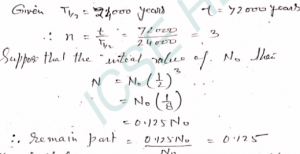 Given T₁/₂ = 24000 years t = 72000 years
∴ n = t/T₁/₂ = 72000/24000 = 3
Suppose that the initial value of N₀ then
N = N₀(1/2)³
= N₀(1/8)
= 0.125 N₀
∴ remain part = 0.125N₀/N₀ = 0.125